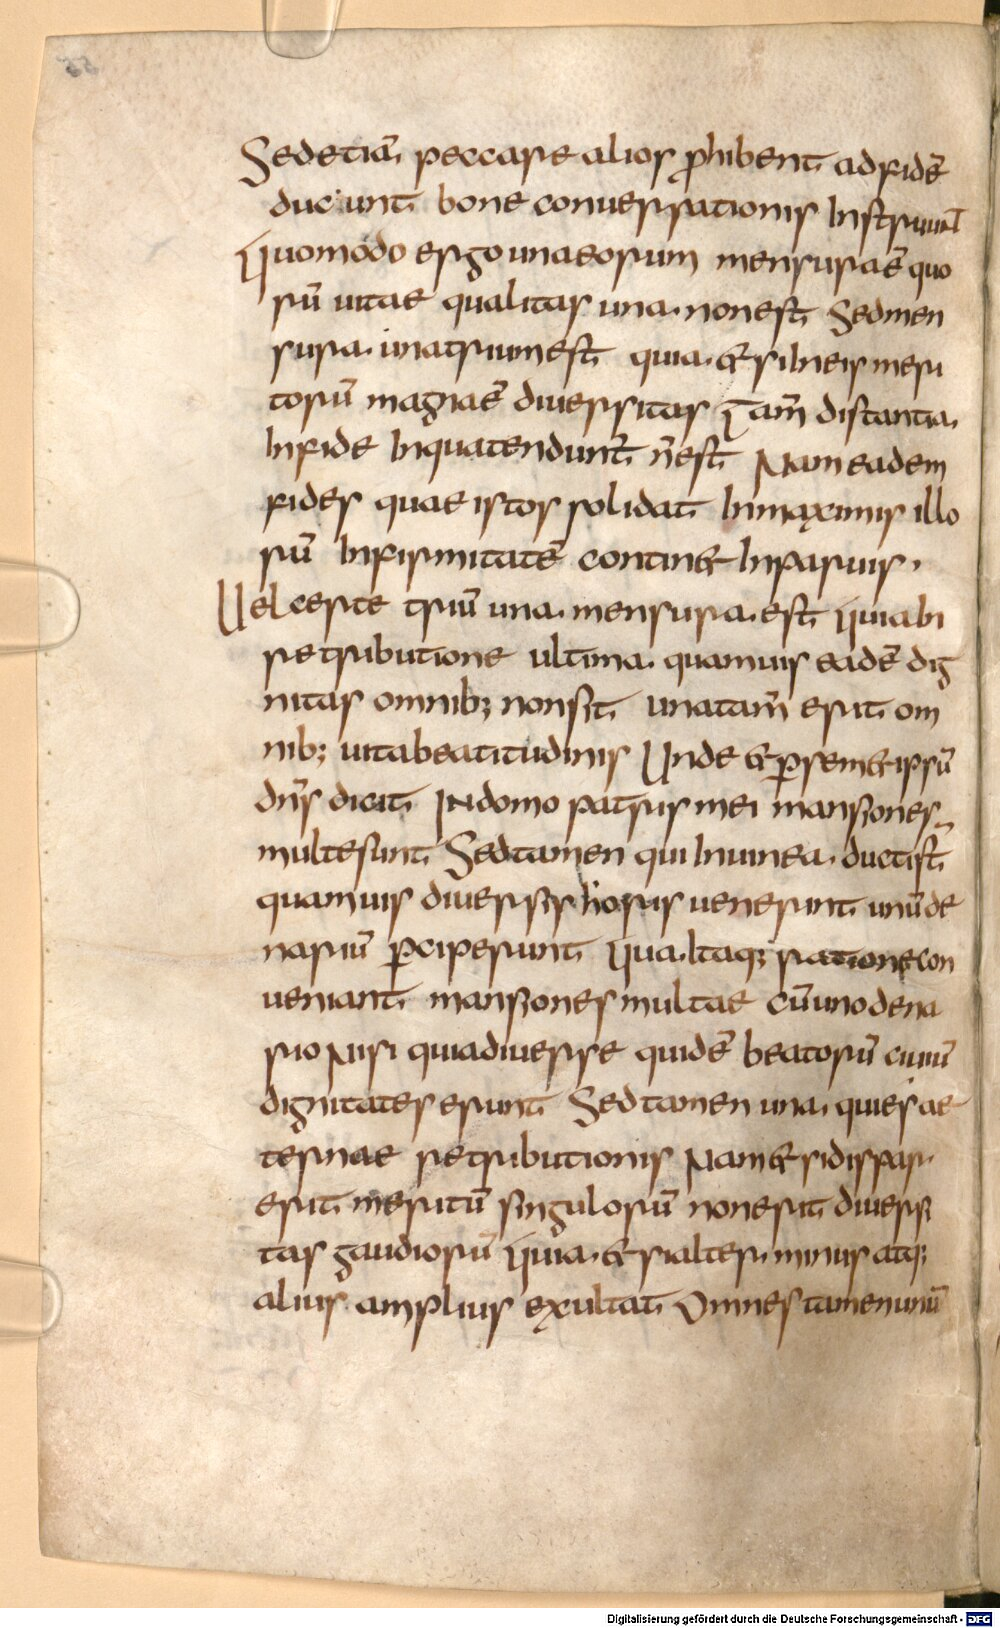 Sed etiā peccare alios ꝓhibent ad fidē
ducunt bone conuersationis Instruunt
Quomodo ergo una eorum mensura ē quo
rū uitae qualitas una non est Sed men
sura una trium est quia & si In eis meri
torū magna ē diuersitas tam̄ distantia
In fide In qua tendunt n̄ est Nam eadem
fides quae istos solidat In maximis illo
rū Infirmitatē contin& In paruis ·
Uel certe triū una mensura est Quia bi
retributione ultima quamuis eadē dig
nitas omnib; non sit una tam̄ erit om
nib; uita beatitudinis Unde & ꝑ sem&ipsū
dn̄s dicit In domo patris mei mansiones
multe sunt Sed tamen qui In uinea ducti st̄
quamuis diuersis horis uenerunt unū de
nariū ꝑciperunt Qua Itaq; ratione con
ueniant mansiones multae cū uno dena
rio Nisi quia diuerse quidē beatorū ciuiū
dignitates erunt Sed tamen una quies ae
ternae retributionis Nam & si dispar
erit meritū singulorū non erit diuersi
tas gaudiorū Quia & si alter minus atq;
alius amplius exultat Omnes tamen unū
Digitalisierung gefördert durch die Deutsche Forschungsgemeinschaft - DFG